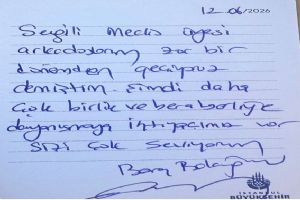 12.06/2026
Sevgili Meclis üyesi
arkadaşlarım zor bir
dönemden geçiyoruz
demiştim. Şimdi daha
çok birlik ve beraberliğe
dayanışmaya ihtiyacımız var
Sizi çok seviyorum
İSTANBUL
BÜYÜKŞEHİR